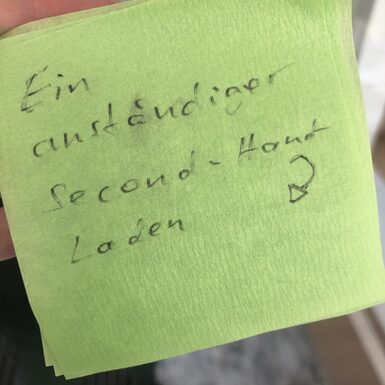 Ein
anständiger
second-Hand
Laden